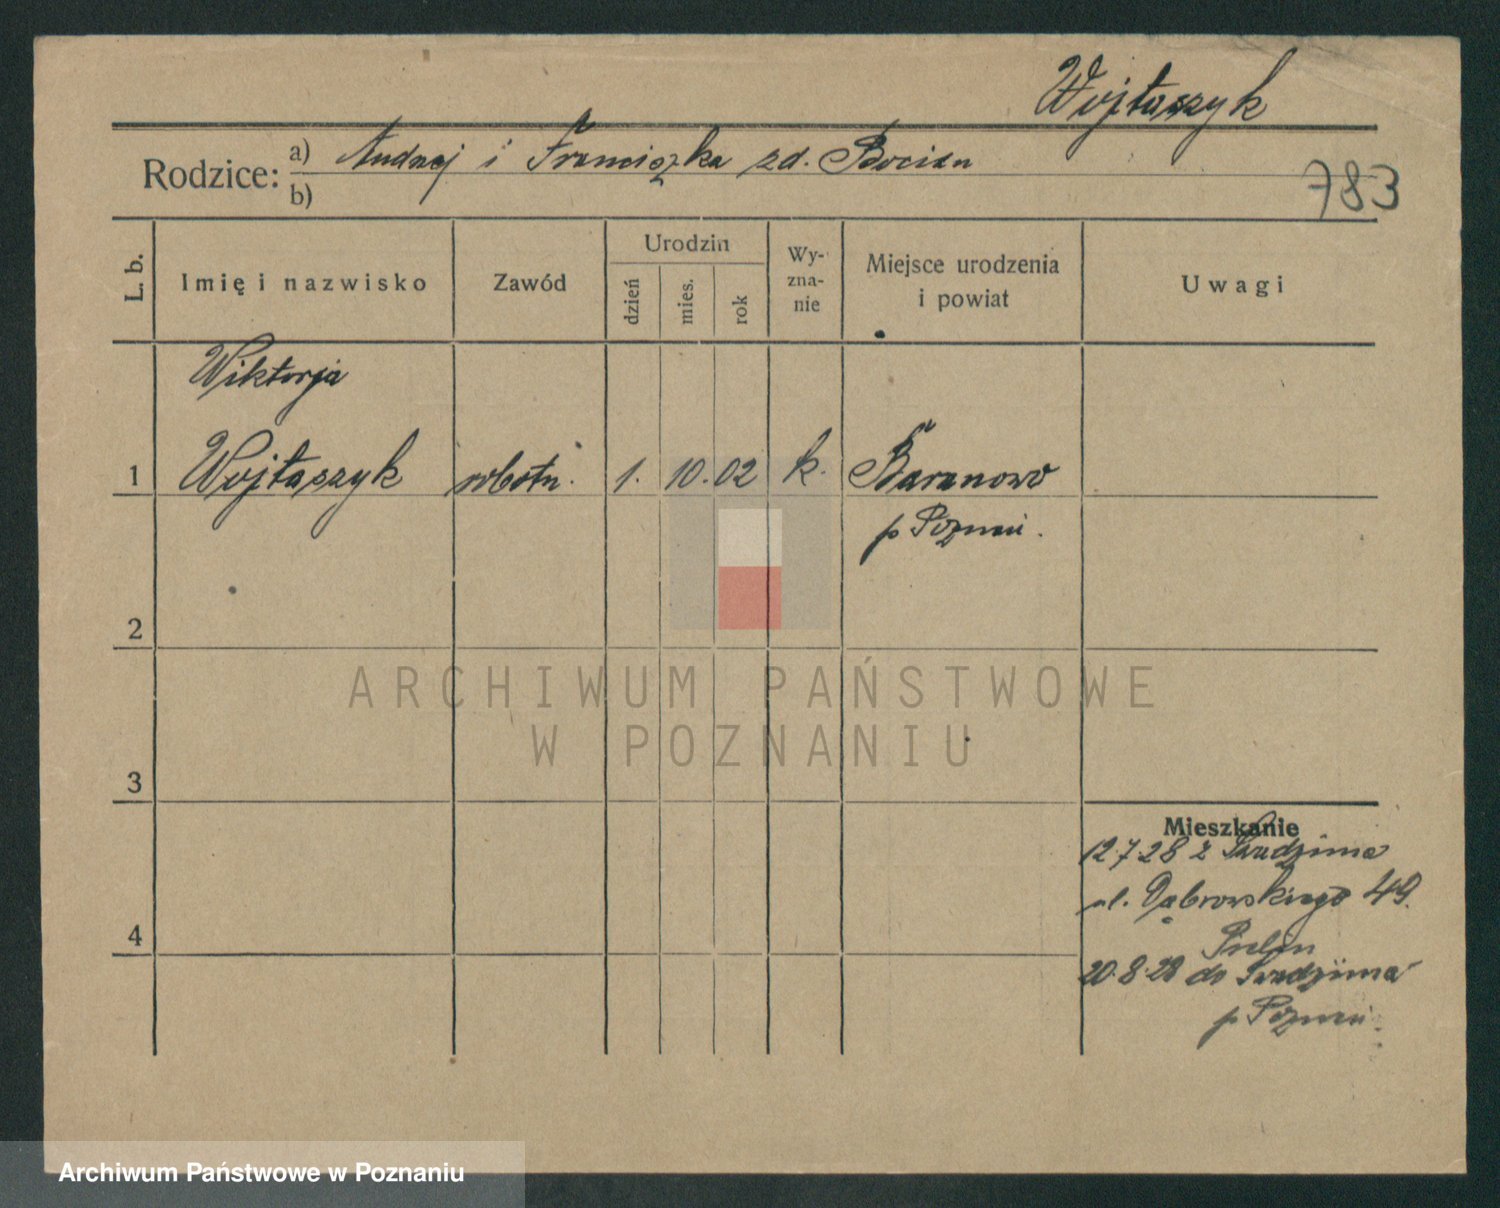 Wojtaszyk
Rodzice: a) Andrzej i Franciszka zd. Bocian
b)
783
L. b.
Imię i nazwisko
Zawód
Urodzin
dzień
mies.
rok
Wy-
zna-
nie
Miejsce urodzenia
i powiat
Uwagi
Wiktorja
1 Wojtaszyk robotn. 1. 10. 02 k. Baranowo
p Poznań.
2
3
4
Mieszkanie
12.7.28 z Swadzima
ul. Dąbrowskiego 49.
20.8.28 do Swadzima
p Poznań.
ARCHIWUM PAŃSTWOWE
W POZNANIU
Archiwum Państwowe w Poznaniu